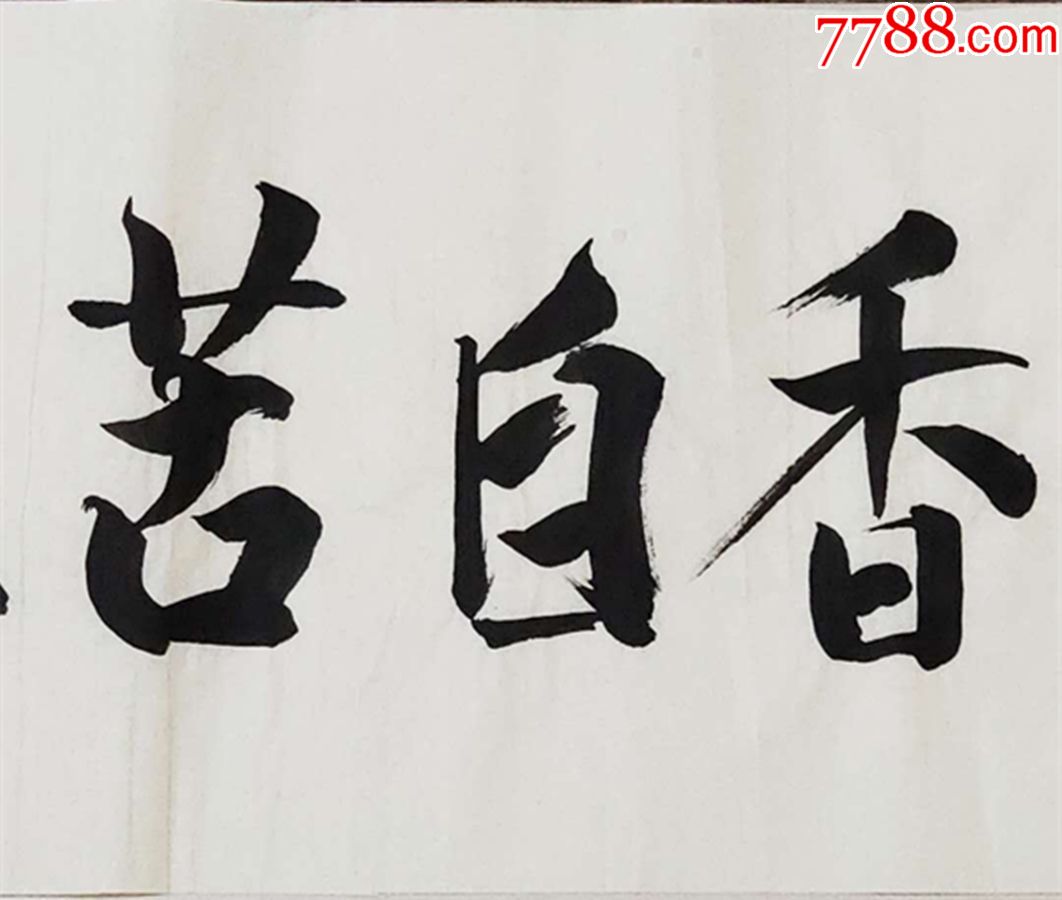 7788.com
香自苦